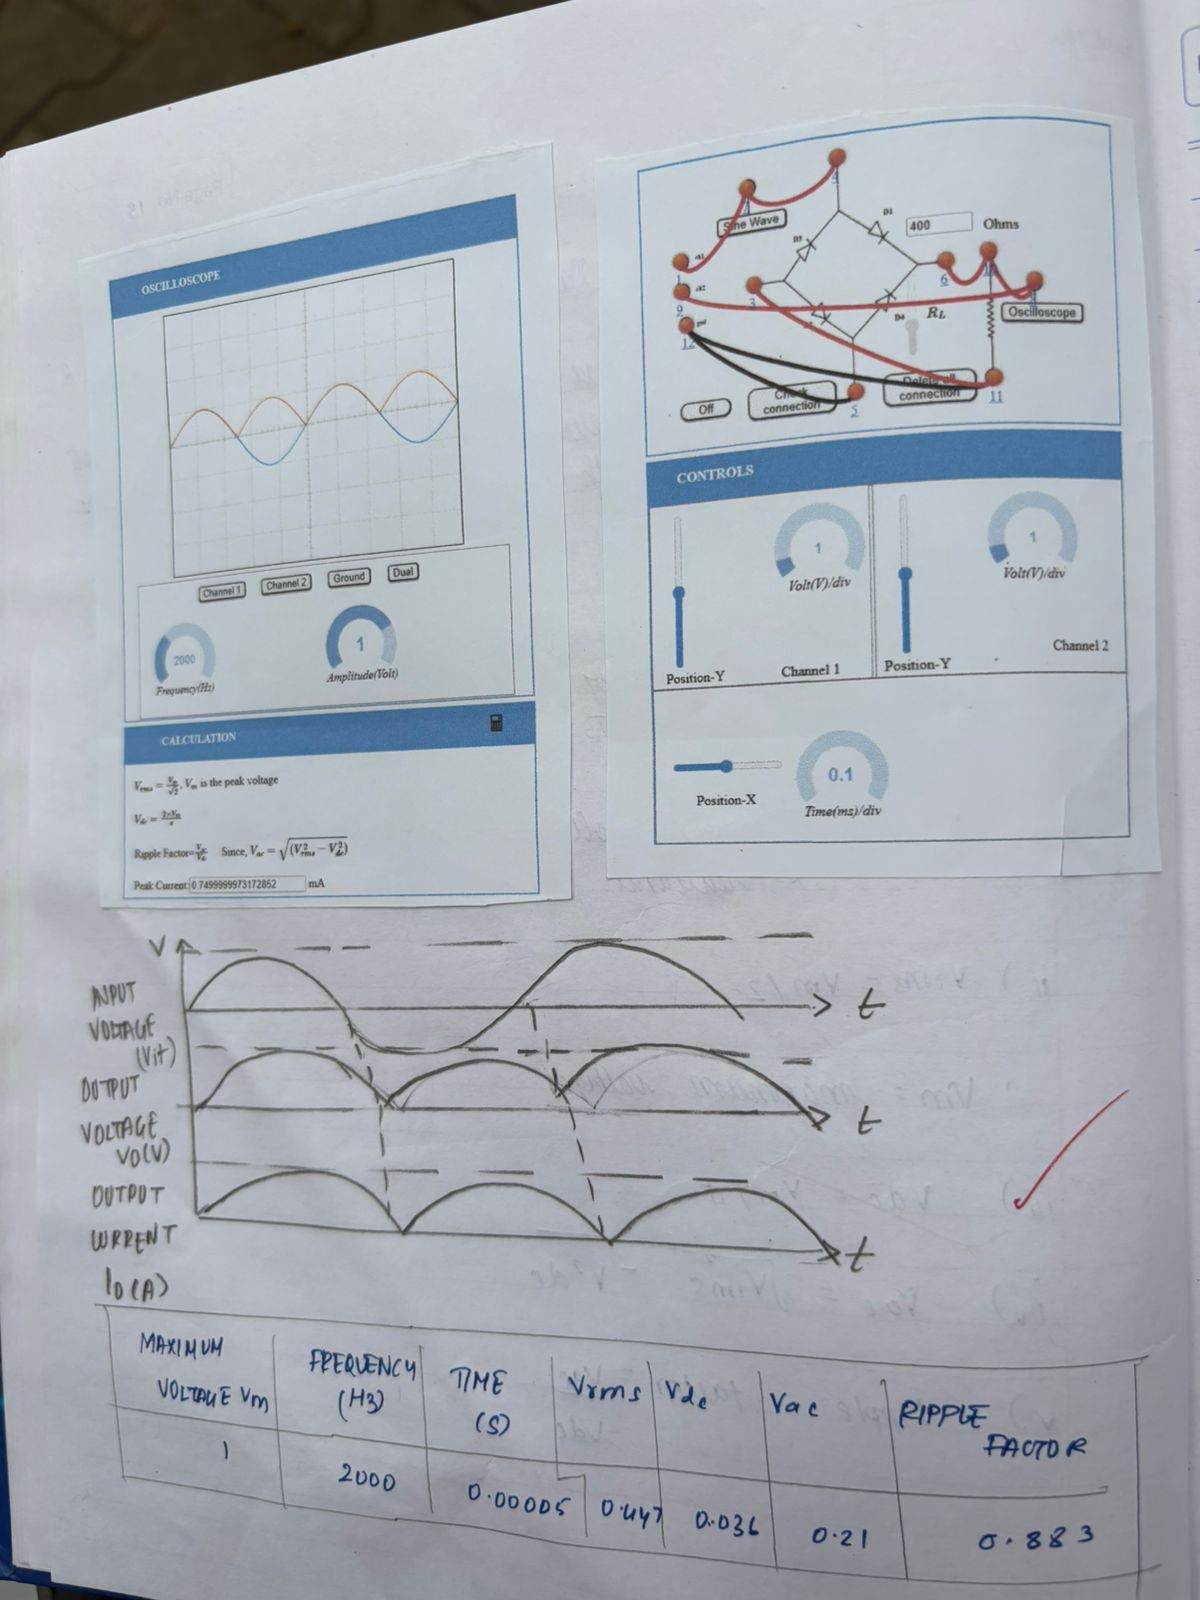 OSCILLOSCOPE
Channel 1
Channel 2
Ground
Dual
2000
Frequency(Hz)
1
Amplitude(Volt)
CALCULATION
Vrms = Vm/√2, Vm is the peak voltage
Vdc = 2*Vm/π
Ripple Factor= Vac/Vdc Since, Vac = √(V²rms − V²dc)
Peak Current: 0.7499999973172852 mA
Sine Wave
400 Ohms
D1
D3
D4
RL
Oscilloscope
1
9
12
3
6
5
11
Off
Check connection
Delete all connection
CONTROLS
1
Volt(V)/div
Position-Y
Channel 1
1
Volt(V)/div
Position-Y
Channel 2
Position-X
0.1
Time(ms)/div
V
INPUT
VOLTAGE
(Vit)
t
OUTPUT
VOLTAGE
VO(V)
t
OUTPUT
CURRENT
IO(A)
t
MAXIMUM VOLTAGE Vm
FREQUENCY (Hz)
TIME (S)
Vrms
Vdc
Vac
RIPPLE FACTOR
1
2000
0.00005
0.447
0.036
0.21
0.883